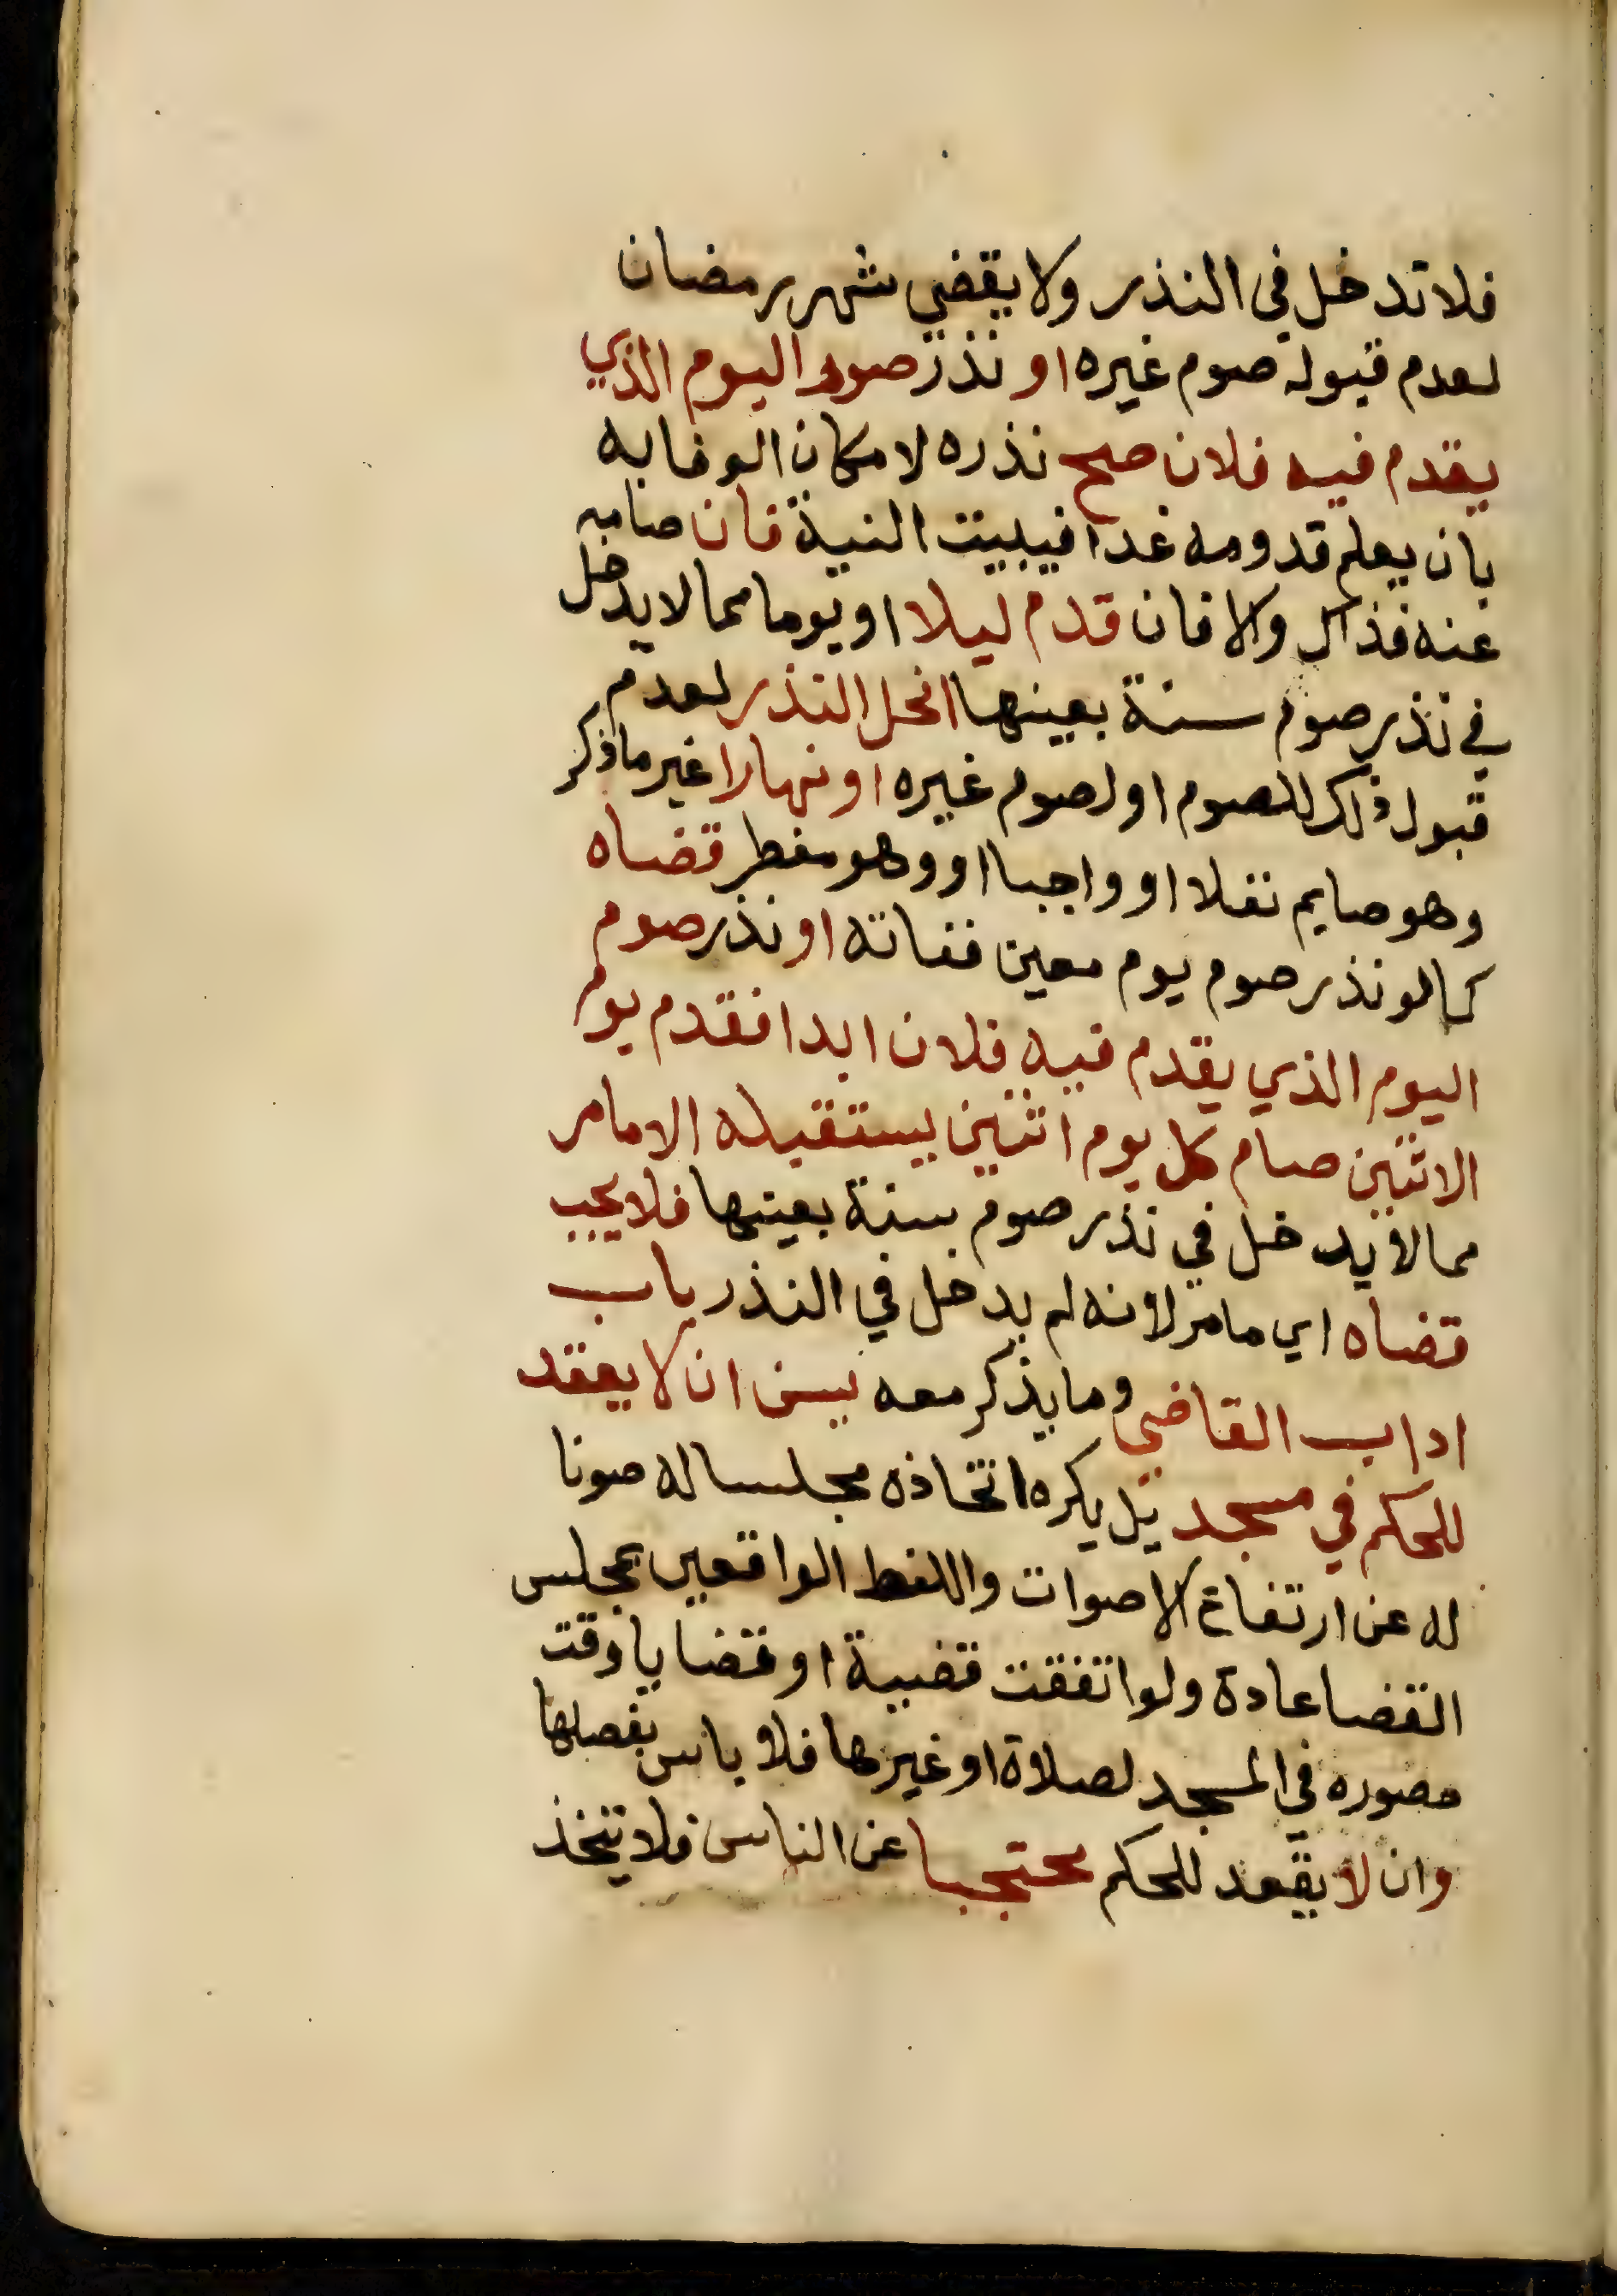 فلا تدخل في النذر ولا يقضي شهر رمضان
لعدم قبوله صوم غيره او نذر صوم اليوم الذي
يقدم فيه فلان صح نذره لامكان الوفا به
بان يعلم قدومه غدا فيبيت النية فان صامه
عنه فذاك والا فان قدم ليلا او يوما مما لا يدخل
في نذر صوم سنة بعينها انحل النذر لعدم
قبول ذلك للصوم او لصوم غيره او نهارا غير ما ذكر
وهو صايم نفلا او واجبا او وهو مفطر قضاه
كما لو نذر صوم يوم معين ففاته او نذر صوم
اليوم الذي يقدم فيه فلان ابدا فقدم يوم
الاثنين صام كل يوم اثنين يستقبله الا ما مر
مما لا يدخل في نذر صوم سنة بعينها فلا يجب
قضاه اي ما مر لانه لم يدخل في النذر باب
اداب القاضي وما يذكر معه يسن ان لا يقعد
للحكم في مسجد بل يكره اتخاذه مجلسا له صونا
له عن ارتفاع الاصوات واللغط الواقعين بمجلس
القضا عادة ولو اتفقت قضية او قضايا وقت
حضوره في المسجد لصلاة او غيرها فلا باس بفصلها
وان لا يقعد للحكم محتجبا عن الناس فلا يتخذ